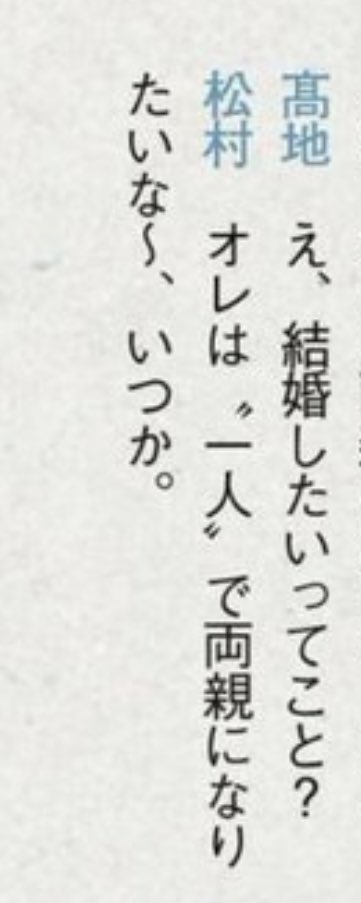 髙地　え、結婚したいってこと？
松村　オレは〝一人〟で両親になり
たいな〜、いつか。